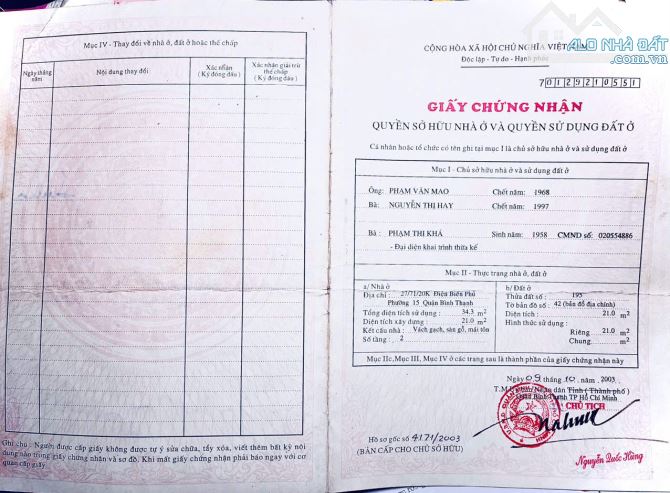 Mục IV - Thay đổi về nhà ở, đất ở hoặc thế chấp
Ngày tháng năm
Nội dung thay đổi
Xác nhận (Ký đóng dấu)
Xác nhận giải trừ thế chấp (Ký đóng dấu)
Ghi chú : Người được cấp giấy không được tự ý sửa chữa, tẩy xóa, viết thêm bất kỳ nội
dung nào trong giấy chứng nhận và sơ đồ. Khi mất giấy chứng nhận phải báo ngay với cơ
quan cấp giấy.
ALO NHÀ ĐẤT
.com.vn
CỘNG HÒA XÃ HỘI CHỦ NGHĨA VIỆT NAM
Độc lập - Tự do - Hạnh phúc
70129210551
GIẤY CHỨNG NHẬN
QUYỀN SỞ HỮU NHÀ Ở VÀ QUYỀN SỬ DỤNG ĐẤT Ở
Cá nhân hoặc tổ chức có tên ghi tại mục I là chủ sở hữu nhà ở và sử dụng đất ở
Mục I - Chủ sở hữu nhà ở và sử dụng đất ở
Ông: PHẠM VĂN MAO Chết năm: 1968
Bà: NGUYỄN THỊ HAY Chết năm: 1997
Bà : PHẠM THỊ KHÁ Sinh năm : 1958 CMND số: 020554886
- Đại diện khai trình thừa kế
Mục II - Thực trạng nhà ở, đất ở
a/ Nhà ở
Địa chỉ : 27/71/20K Điện Biên Phủ
Phường 15 Quận Bình Thạnh
Tổng diện tích sử dụng : 34.3 m2
Diện tích xây dựng : 21.0 m2
Kết cấu nhà : Vách gạch, sàn gỗ, mái tôn
Số tầng : 2
b/ Đất ở
Thửa đất số : 193
Tờ bản đồ số : 42 (bản đồ địa chính)
Diện tích : 21.0 m2
Hình thức sử dụng :
Riêng : 21.0 m2
Chung : m2
Mục IIc, Mục III, Mục IV ở các trang sau là thành phần của giấy chứng nhận này
Ngày 09 tháng 10 năm 2003
T.M Ủy Ban Nhân dân Tỉnh ( Thành phố )
Quận Bình Thạnh TP Hồ Chí Minh
CHỦ TỊCH
Hồ sơ gốc số 4171/2003
(BẢN CẤP CHO CHỦ SỞ HỮU)
Nguyễn Quốc Hùng